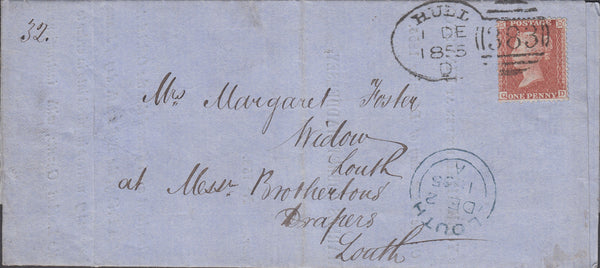 32.
HULL
1 DE
1855
D
383
POSTAGE
ONE PENNY
Mrs Margaret Foster
Widow
Louth
at Messrs Brothertons
Drapers
Louth
LOUTH
DE 2
1855
A